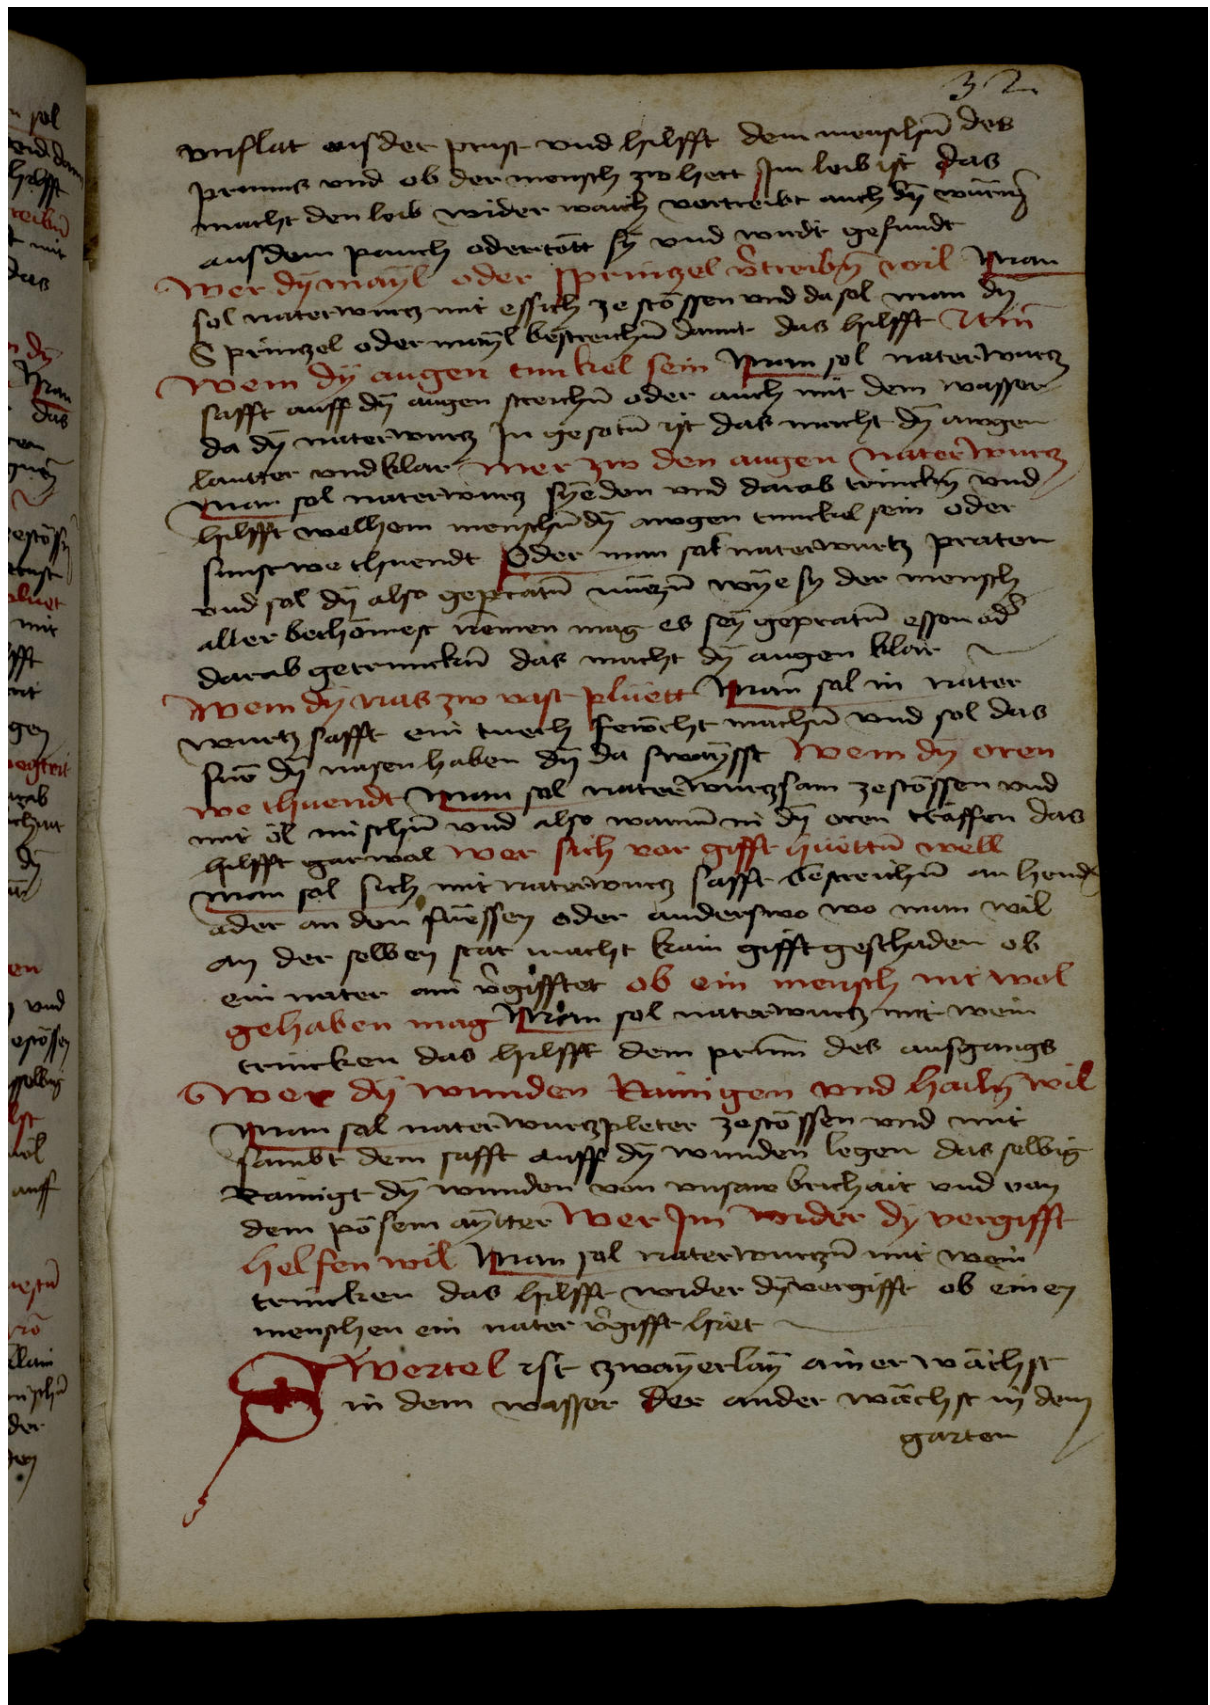 32
vnflat aus der prust vnd hilfft dem menschn̄ des
prunns vnd ob der mensch zw hert Im leib ist das
macht den leib wider waich vertreibt auch dÿ würm
aus dem pauch oder tott sÿ vnd wirdt gesundt
Wer dÿ maÿl oder sprinzel v̄treibn̄ wil Man
sol naterwurcz mit essich zestössen vnd da sol man dÿ
Sprinczel oder maÿl bestreichn̄ damit das hilfft
Wem dÿ augen tunkel sein Man sol naterwurcz
safft auff dÿ augen streichn̄ oder auch mit dem wasser
da dÿ naterwurcz In gesotn̄ ist das macht dÿ awgen
lautter vnd klar Mer zw den augen naterwurcz
Man sol naterwurcz syeden vnd darab trinckn̄ vnd
hilfft welhem menschn̄ dÿ awgen tunckel sein oder
sunst we thuendt Oder man sol naterwurtz praten
vnd sol dÿ also gepratn̄ nüczn̄ wÿe sy der mensch
aller bechömest nemen mag es seÿ gepratn̄ essen od̄
darab getrunckn̄ das macht dÿ augen klar
Wem dÿ nas zw vast plüett Man sol in nater
wurtz safft ein tuech fewcht machn̄ vnd sol das
für dÿ nasen haben dÿ da swaÿsst Wem dÿ oren
we thuendt Man sol naterwurcz sam zestössen vnd
mit öl mischn̄ vnd also warm in dÿ oren träffen das
hilfft gar wol Wer sich vor gifft hüettn̄ well
Man sol sich mit naterwurcz safft bestreichn̄ an hend
oder an den füessen oder anderswo wo man wil
an der selben stat macht kain gifft geschaden ob
ein nater ain v̄gifftet ob ein mensch nit wol
gehaben mag Man sol naterwurcz mit wein
trincken das hilfft dem prunn des ausgangs
Wer dÿ wunden Rainigen vnd hailn̄ wil
Man sol naterwurcz pleter zestössen vnd mit
sambt dem safft auff dÿ wunden legen das selbig
Rainigt dÿ wunden von vnsawbrichait vnd von
dem pösem aÿtter Wer Im wider dÿ vergifft
helfen wil Man sol naterwurczn̄ mit wein
trincken das hilfft wider dÿ vergifft ob einen
menschen ein nater v̄gifft hiet
Swertel ist zwaÿerlaÿ ainer wächst
in dem wasser der ander wächst in dem
garten